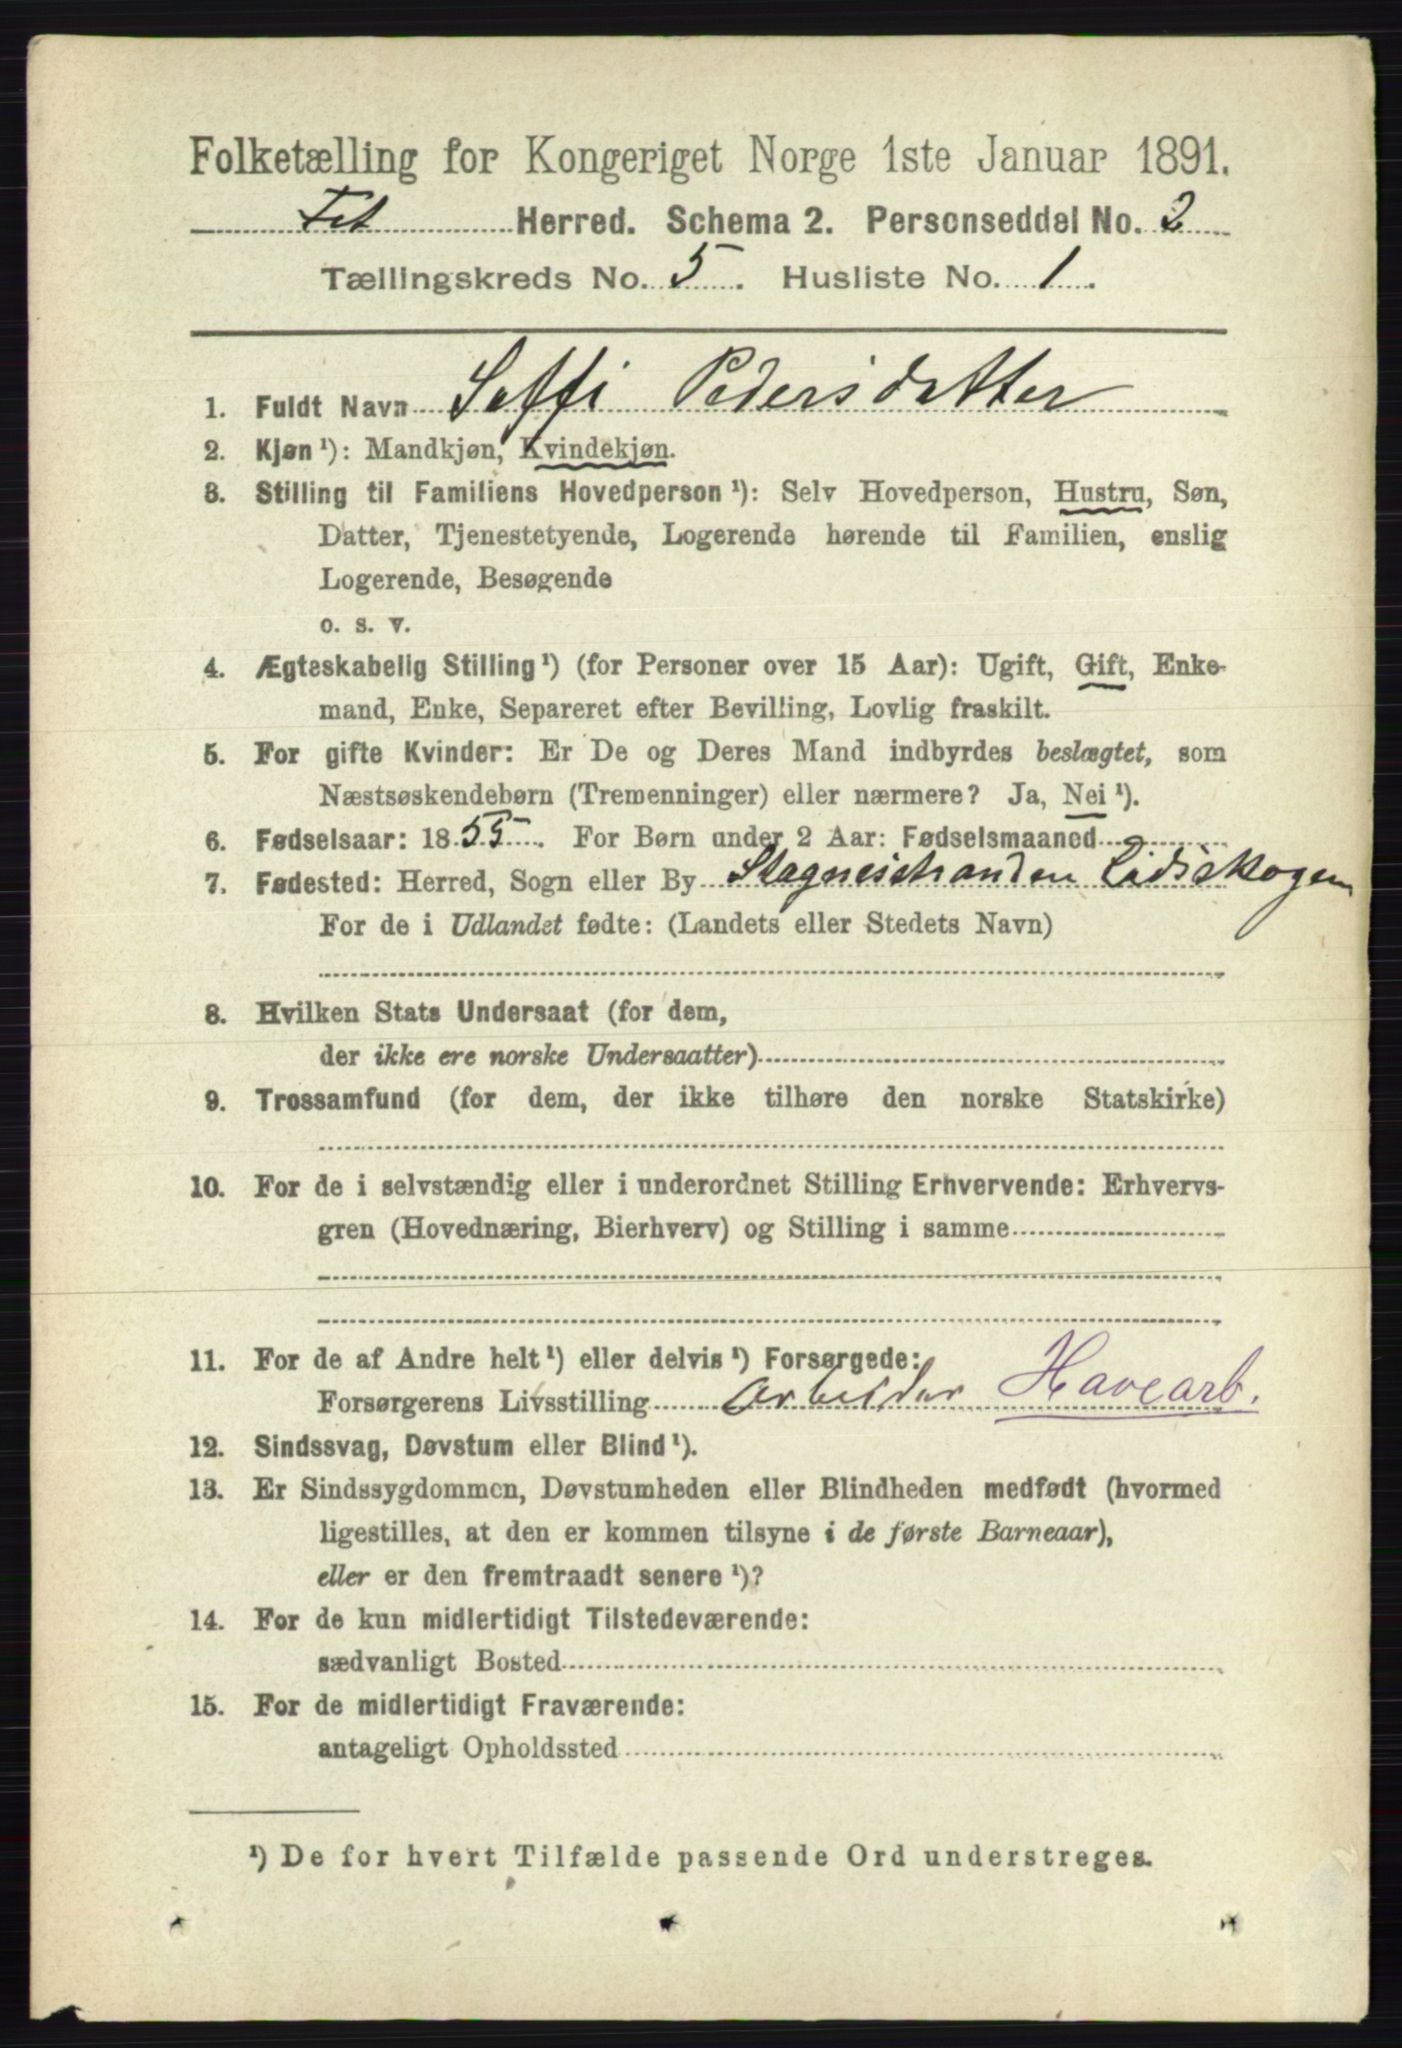 Folketælling for Kongeriget Norge 1ste Januar 1891.
Fet Herred. Schema 2. Personseddel No. 2
Tællingskreds No. 5. Husliste No. 1.
1. Fuldt Navn Soffi Pedersdatter
2. Kjøn ¹): Mandkjøn, Kvindekjøn.
3. Stilling til Familiens Hovedperson ¹): Selv Hovedperson, Hustru, Søn,
Datter, Tjenestetyende, Logerende hørende til Familien, enslig
Logerende, Besøgende
o. s. v.
4. Ægteskabelig Stilling ¹) (for Personer over 15 Aar): Ugift, Gift, Enke-
mand, Enke, Separeret efter Bevilling, Lovlig fraskilt.
5. For gifte Kvinder: Er De og Deres Mand indbyrdes beslægtet, som
Næstsøskendebørn (Tremenninger) eller nærmere? Ja, Nei ¹).
6. Fødselsaar: 1855. For Børn under 2 Aar: Fødselsmaaned
7. Fødested: Herred, Sogn eller By Stagnesstranden Eidsskogen
For de i Udlandet fødte: (Landets eller Stedets Navn)
8. Hvilken Stats Undersaat (for dem,
der ikke ere norske Undersaatter)
9. Trossamfund (for dem, der ikke tilhøre den norske Statskirke)
10. For de i selvstændig eller i underordnet Stilling Erhvervende: Erhvervs-
gren (Hovednæring, Bierhverv) og Stilling i samme
11. For de af Andre helt ¹) eller delvis ¹) Forsørgede:
Forsørgerens Livsstilling Arbeider Havearb.
12. Sindssvag, Døvstum eller Blind ¹).
13. Er Sindssygdommen, Døvstumheden eller Blindheden medfødt (hvormed
ligestilles, at den er kommen tilsyne i de første Barneaar),
eller er den fremtraadt senere ¹)?
14. For de kun midlertidigt Tilstedeværende:
sædvanligt Bosted
15. For de midlertidigt Fraværende:
antageligt Opholdssted
¹) De for hvert Tilfælde passende Ord understreges.